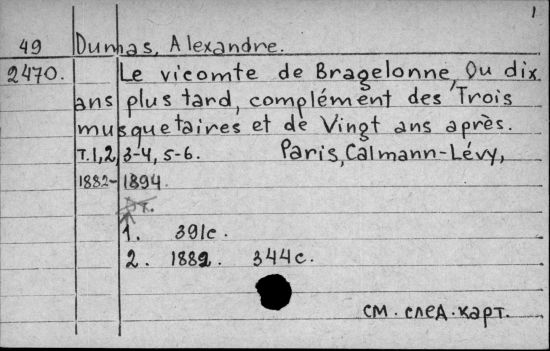 1
49 Dumas, Alexandre.
2470. Le vicomte de Bragelonne, Ou dix
ans plus tard, complément des Trois
musquetaires et de Vingt ans après.
T.1,2, 3-4, 5-6. Paris, Calmann-Lévy,
1882-1894.
1. 391c.
2. 1882. 344c.
см. след. карт.